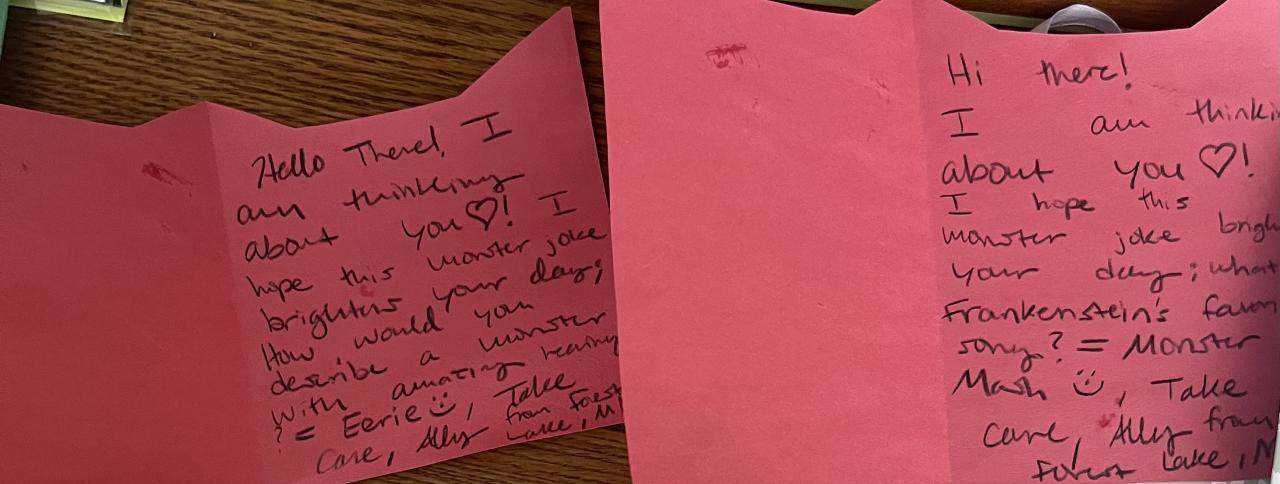 Hello There!, I
am thinking
about you♡! I
hope this monster joke
brightens your day;
How would you
describe a monster
with amazing hearing
? = Eerie☺, Take
Care, Ally from Forest
Lake, M
Hi there!
I am thinki
about you ♡!
I hope this
monster joke brigh
your day; what
Frankenstein's favor
song? = Monster
Mash ☺, Take
care, Ally from
Forest Lake, M